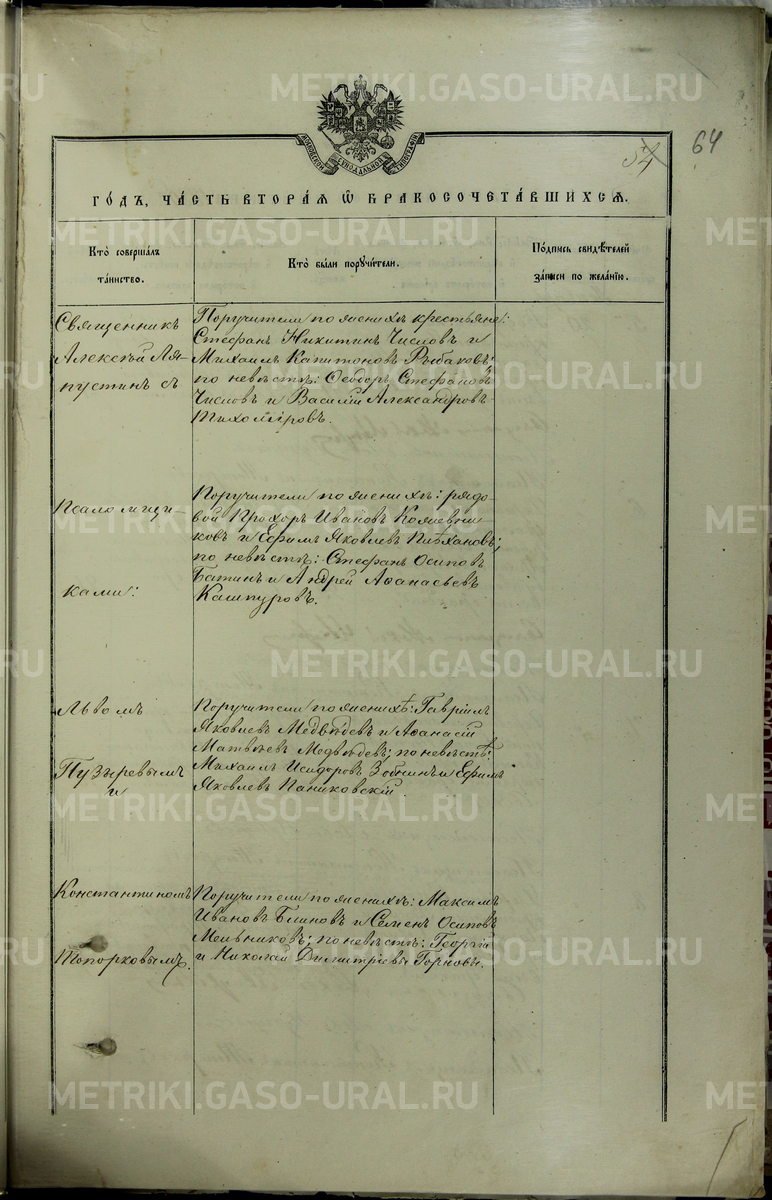 METRIKI.GASO-URAL.RU
МОСКОВСКОЙ СѴНОДАЛЬНОЙ ТИПОГРАФІИ
54
64
ГО́ДЪ, ЧА́СТЬ ВТОРА́Я Ѡ БРАКОСОЧЕТА́ВШИХСЯ.
Кто̀ совершáлъ
тáинство.
Кто̀ бы́ли поручи́тели.
По́дпись свидѣ́телей
зáписи по желáнію.
Священникъ
Алексѣй Ля-
пустинъ съ
Поручители по женихѣ крестьяне:
Стефанъ Никитинъ Числовъ и
Михаилъ Капитоновъ Рыбаковъ;
по невѣстѣ: Ѳеодоръ Стефановъ
Числовъ и Василій Александровъ
Тихоміровъ.
Псаломщи-
ками:
Поручители по женихѣ: рядо-
вой Прохоръ Ивановъ Кожевни-
ковъ и Ефимъ Яковлевъ Плѣхановъ;
по невѣстѣ: Стефанъ Осиповъ
Батинъ и Андрей Аѳанасьевъ
Кашпуровъ.
Львомъ
Пузыревымъ
и
Поручители по женихѣ: Гавріилъ
Яковлевъ Медвѣдевъ и Аѳанасій
Матвѣевъ Медвѣдевъ; по невѣстѣ:
Михаилъ Исидоровъ Зобнинъ и Ефимъ
Яковлевъ Паниковскій.
Константиномъ
Топорковымъ.
Поручители по женихѣ: Максимъ
Ивановъ Блиновъ и Семенъ Осиповъ
Мельниковъ; по невѣстѣ: Георгій
и Николай Димитріевы Горновы.